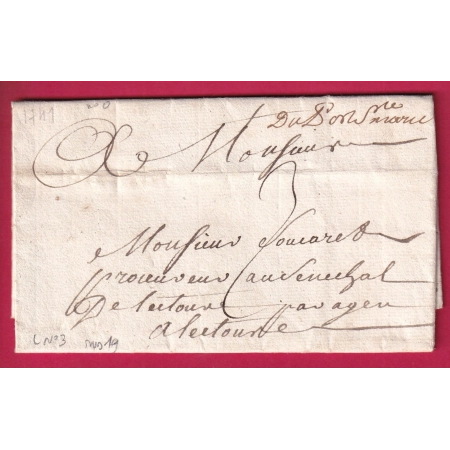 1741
Du Port Ste marie
A Monsieur
3
Monsieur
procureur au Senechal
De lectoure par agen
a lectoure
L N°3